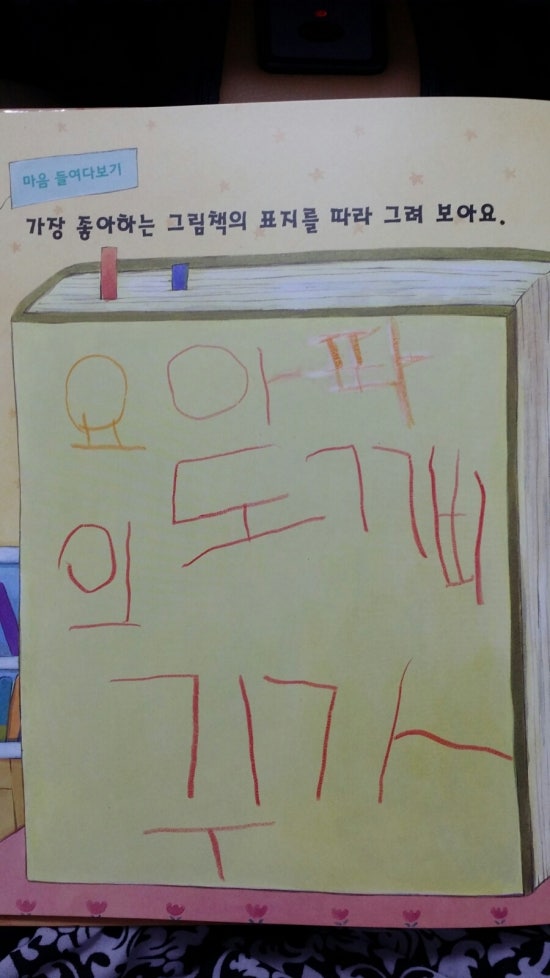 마음 들여다보기
가장 좋아하는 그림책의 표지를 따라 그려 보아요.
요 아파
도깨비
의
귀가